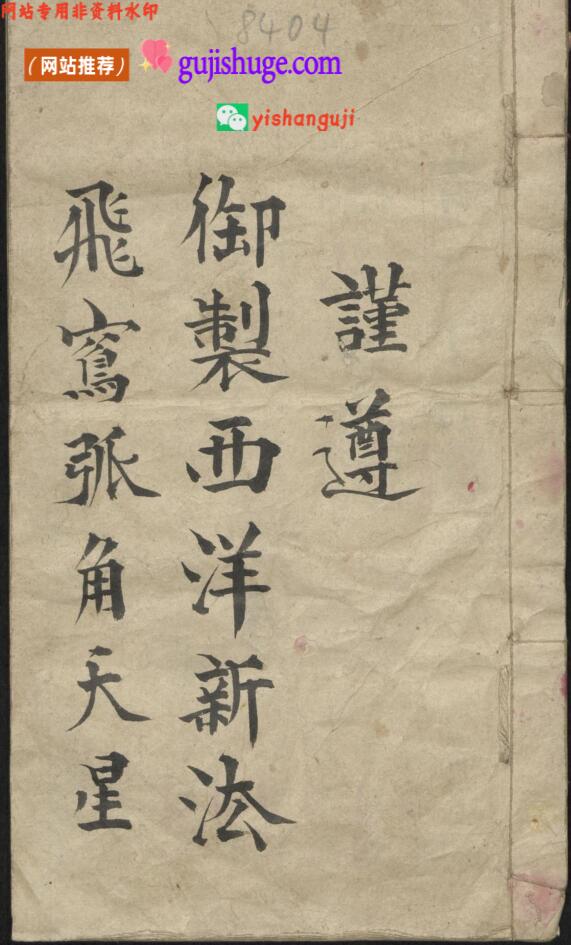 网站专用非资料水印
8404
（网站推荐） gujishuge.com
yishanguji
謹遵
御製西洋新法
飛寫弧角天星